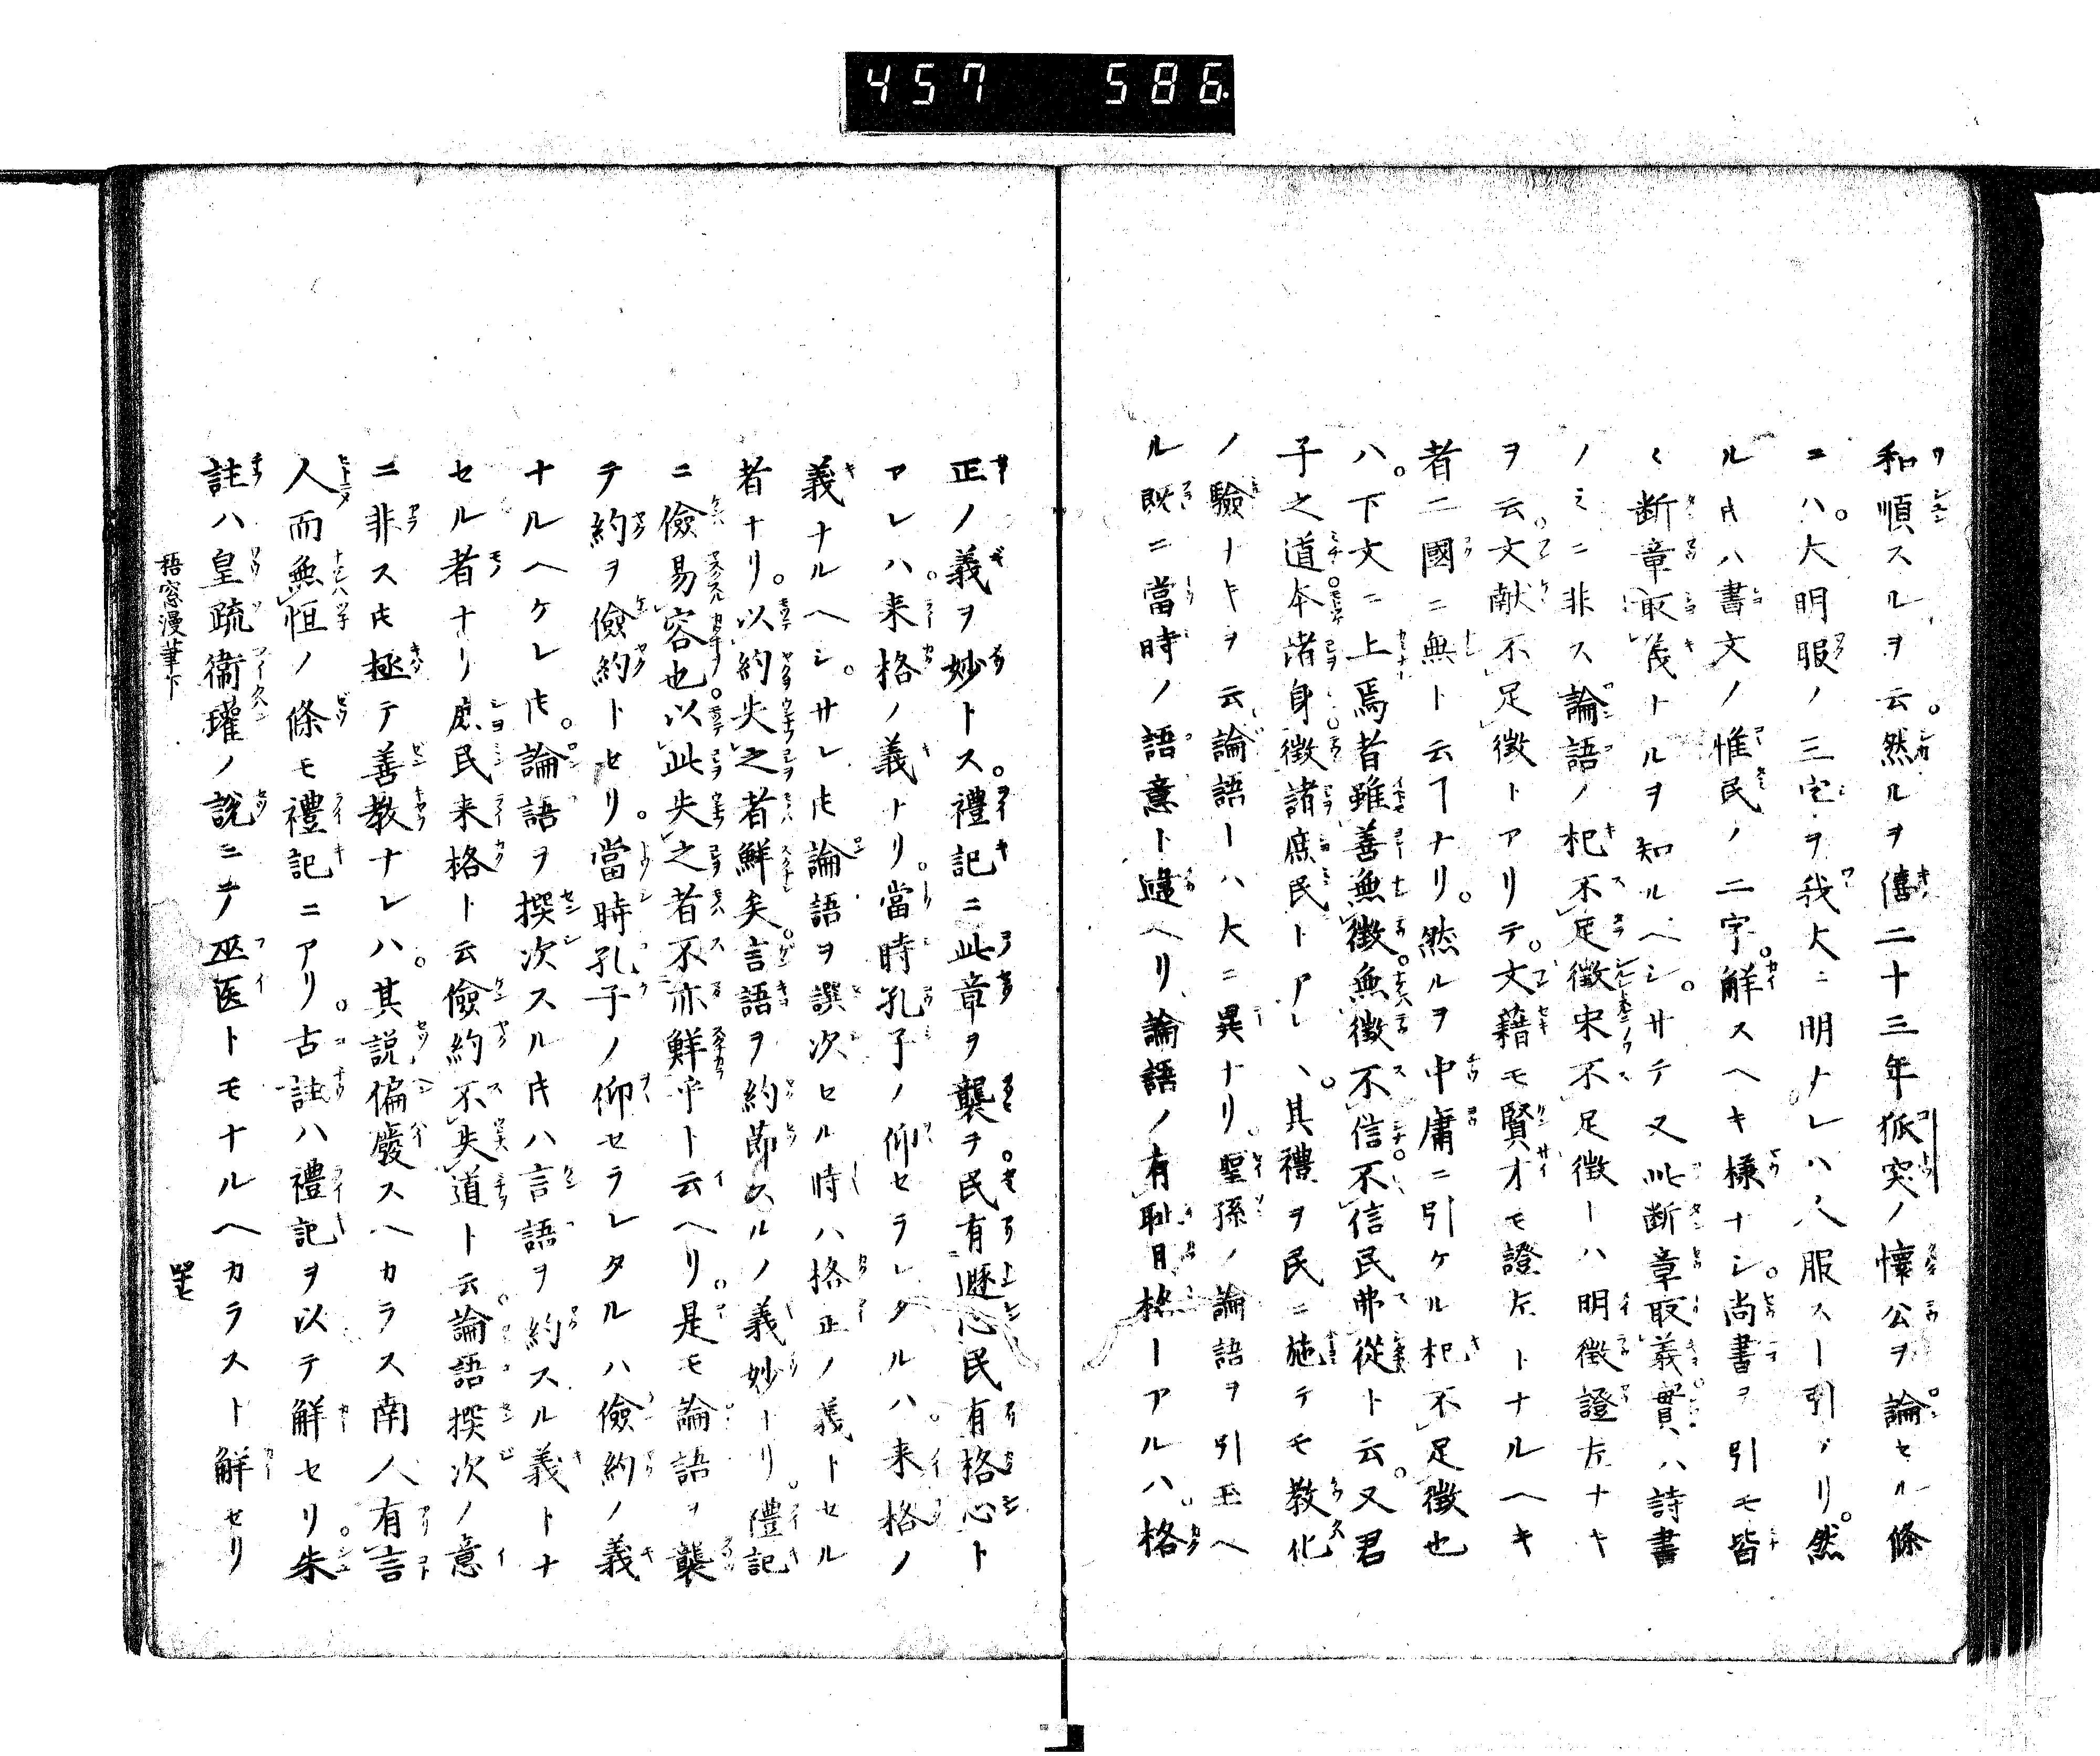 457 586
和順スルヲ云然ルヲ僖二十三年狐突ノ懷公ヲ論セル條
ニハ大明服ノ三字ヲ我大ニ明ナレハ人服スト引ケリ然
ル片ハ書文ノ惟民ノ二字解スヘキ様ナシ尚書ヲ引モ皆
〻断章取義トナルヲ知ルヘシサテ又此断章取義實ハ詩書
ノミニ非ス論語ノ杞不足徴宋不足徴ーハ明徴證左ナキ
ヲ云文献不足徴トアリテ文藉モ賢才モ證左トナルヘキ
者二國ニ無ト云ヿナリ然ルヲ中庸ニ引ケル杞不足徴也
ハ下文ニ上焉者雖善無徴無徴不信不信民弗從ト云又君
子之道本諸身徴諸庶民トアレハ其禮ヲ民ニ施テモ教化
ノ驗ナキヲ云論語ーハ大ニ異ナリ聖孫ノ論語ヲ引玉ヘ
ル既ニ當時ノ語意ト違ヘリ論語ノ有恥且格ーアルハ格
正ノ義ヲ妙トス禮記ニ此章ヲ襲ヲ民有遯心民有格心ト
アレハ来格ノ義ナリ當時孔子ノ仰セラレタルハ来格ノ
義ナルヘシサレ𪜈論語ヲ譔次セル時ハ格正ノ義トセル
者ナリ以約失之者鮮矣言語ヲ約節スルノ義妙ーリ禮記
ニ儉易容也以此失之者不亦鮮乎ト云ヘリ是モ論語ヲ襲
テ約ヲ儉約トセリ當時孔子ノ仰セラレタルハ儉約ノ義
ナルヘケレ𪜈論語ヲ撰次スル片ハ言語ヲ約スル義トナ
セル者ナリ庶民来格ト云儉約不失道ト云論語撰次ノ意
ニ非ス𪜈極テ善教ナレハ其説偏廢スヘカラス南人有言
人而無恒ノ條モ禮記ニアリ古註ハ禮記ヲ以テ解セリ朱
註ハ皇疏衞瓘ノ説ニテ巫医トモナルヘカラスト解セリ
梧窓漫筆下